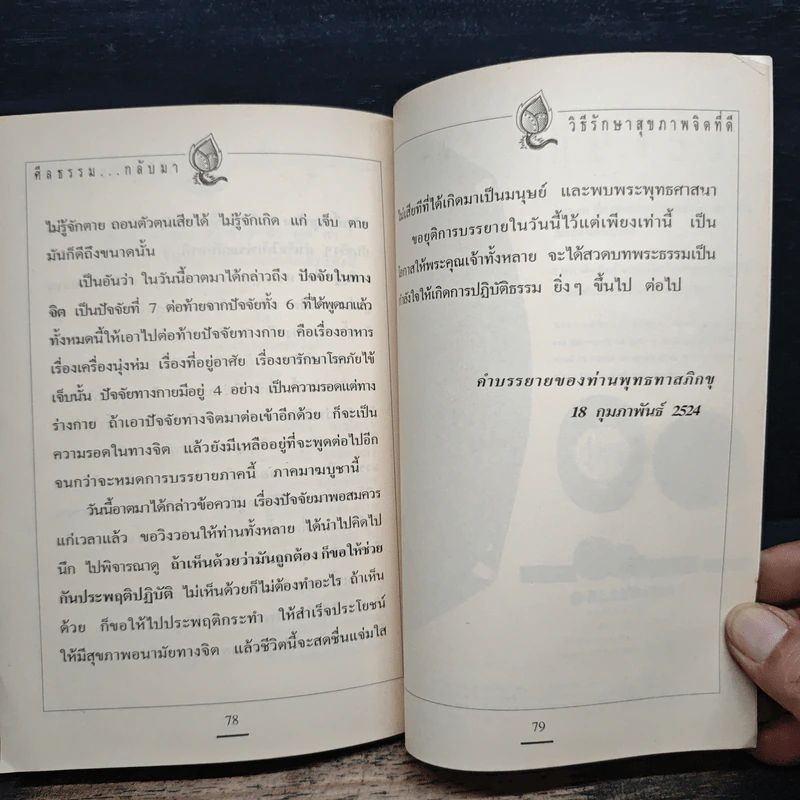 ศีลธรรม...กลับมา
ไม่รู้จักตาย ถอนตัวตนเสียได้ ไม่รู้จักเกิด แก่ เจ็บ ตาย
มันก็ดีถึงขนาดนั้น
เป็นอันว่า ในวันนี้อาตมาได้กล่าวถึง ปัจจัยในทาง
จิต เป็นปัจจัยที่ 7 ต่อท้ายจากปัจจัยทั้ง 6 ที่ได้พูดมาแล้ว
ทั้งหมดนี้ให้เอาไปต่อท้ายปัจจัยทางกาย คือเรื่องอาหาร
เรื่องเครื่องนุ่งห่ม เรื่องที่อยู่อาศัย เรื่องยารักษาโรคภัยไข้
เจ็บนั้น ปัจจัยทางกายมีอยู่ 4 อย่าง เป็นความรอดแต่ทาง
ร่างกาย ถ้าเอาปัจจัยทางจิตมาต่อเข้าอีกด้วย ก็จะเป็น
ความรอดในทางจิต แล้วยังมีเหลืออยู่ที่จะพูดต่อไปอีก
จนกว่าจะหมดการบรรยายภาคนี้ ภาคมาฆบูชานี้
วันนี้อาตมาได้กล่าวข้อความ เรื่องปัจจัยมาพอสมควร
แก่เวลาแล้ว ขอวิงวอนให้ท่านทั้งหลาย ได้นำไปคิดไป
นึก ไปพิจารณาดู ถ้าเห็นด้วยว่ามันถูกต้อง ก็ขอให้ช่วย
กันประพฤติปฏิบัติ ไม่เห็นด้วยก็ไม่ต้องทำอะไร ถ้าเห็น
ด้วย ก็ขอให้ไปประพฤติกระทำ ให้สำเร็จประโยชน์
ให้มีสุขภาพอนามัยทางจิต แล้วชีวิตนี้จะสดชื่นแจ่มใส
78
วิธีรักษาสุขภาพจิตที่ดี
ไม่เสียทีที่ได้เกิดมาเป็นมนุษย์ และพบพระพุทธศาสนา
ขอยุติการบรรยายในวันนี้ไว้แต่เพียงเท่านี้ เป็น
โอกาสให้พระคุณเจ้าทั้งหลาย จะได้สวดบทพระธรรมเป็น
กำลังใจให้เกิดการปฏิบัติธรรม ยิ่งๆ ขึ้นไป ต่อไป
คำบรรยายของท่านพุทธทาสภิกขุ
18 กุมภาพันธ์ 2524
79